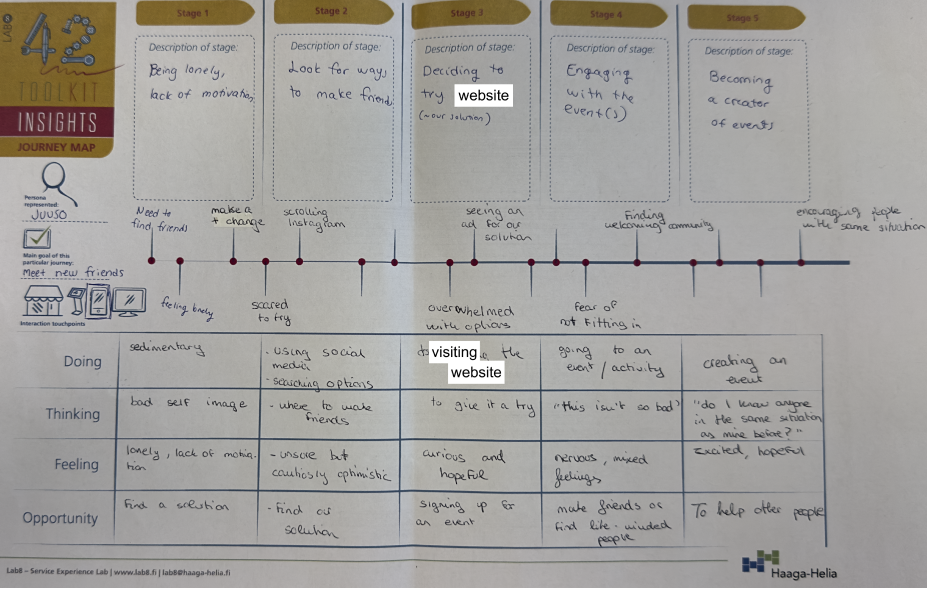 LAB8
42
TOOLKIT
INSIGHTS
JOURNEY MAP
Stage 1
Stage 2
Stage 3
Stage 4
Stage 5
Description of stage:
Being lonely,
lack of motivation
Description of stage:
Look for ways
to make friends
Description of stage:
Deciding to
try website
(~our solution)
Description of stage:
Engaging
with the
event(s)
Description of stage:
Becoming
a creator
of events
Persona
represented:
JUUSO
Main goal of this
particular journey:
Meet new friends
Interaction touchpoints
Need to
find friends
make a
+ change
scrolling
Instagram
seeing an
ad for our
solution
Finding
welcoming community
encouraging people
with the same situation
feeling lonely
scared
to try
overwhelmed
with options
fear of
not fitting in
Doing
sedimentary
- using social
media
- searching options
visiting the
website
going to an
event / activity
creating an
event
Thinking
bad self image
- where to make
friends
to give it a try
"this isn't so bad"
"do I know anyone
in the same situation
as mine before?"
Feeling
lonely, lack of motiva-
tion
- unsore but
cautiosly optimistic
curious and
hopeful
nervous, mixed
feelings
Excited, hopeful
Opportunity
Find a solution
- Find our
solution
signing up for
an event
make friends or
find like-minded
people
To help other people
Lab8 – Service Experience Lab | www.lab8.fi | lab8@haaga-helia.fi
Haaga-Helia